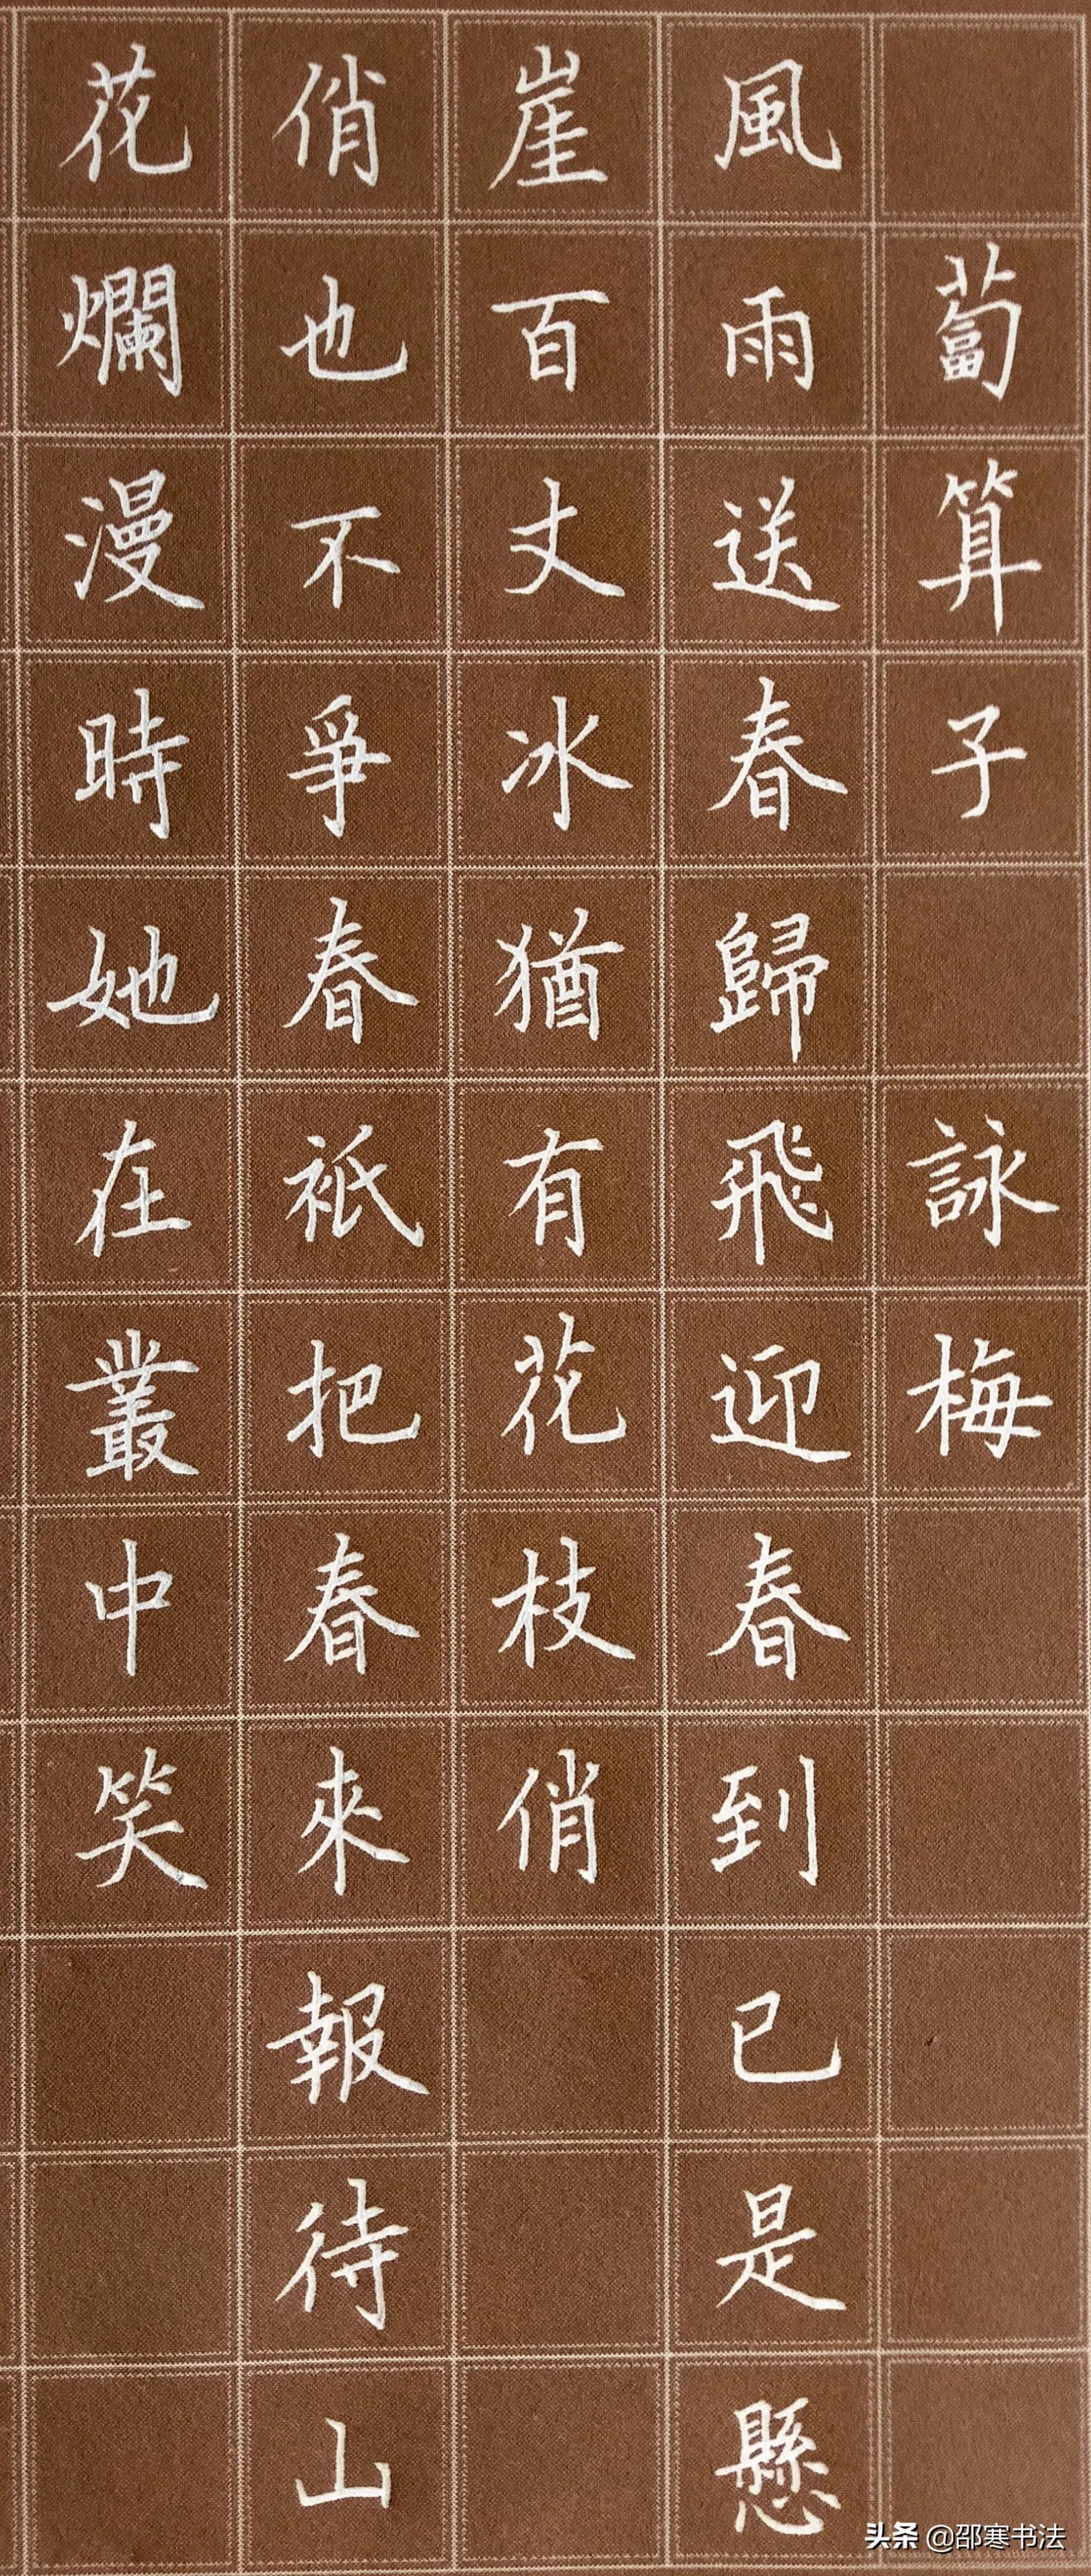 蔔算子 詠梅
風雨送春歸飛迎春到已是懸
崖百丈冰猶有花枝俏
俏也不爭春衹把春來報待山
花爛漫時她在叢中笑
头条 @邵寒书法